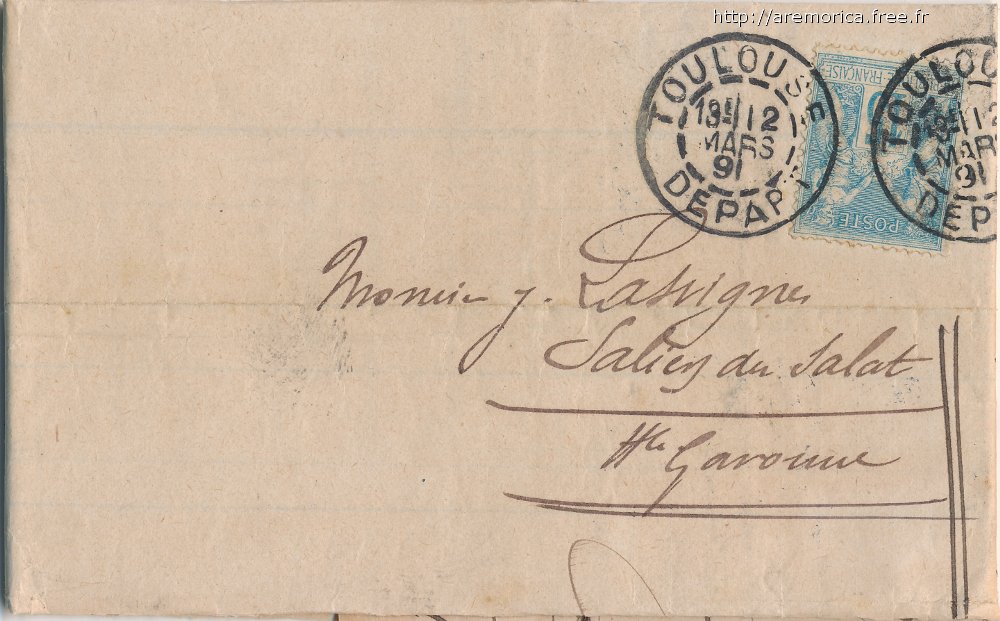 http://aremorica.free.fr
TOULOUSE
13E 12
MARS
91
DEPART
E FRANÇAISE
15
POSTES
TOULOU
12
MARS
91
DEP
Monsieur J. Lassvignes
Salies du Salat
Hte Garonne